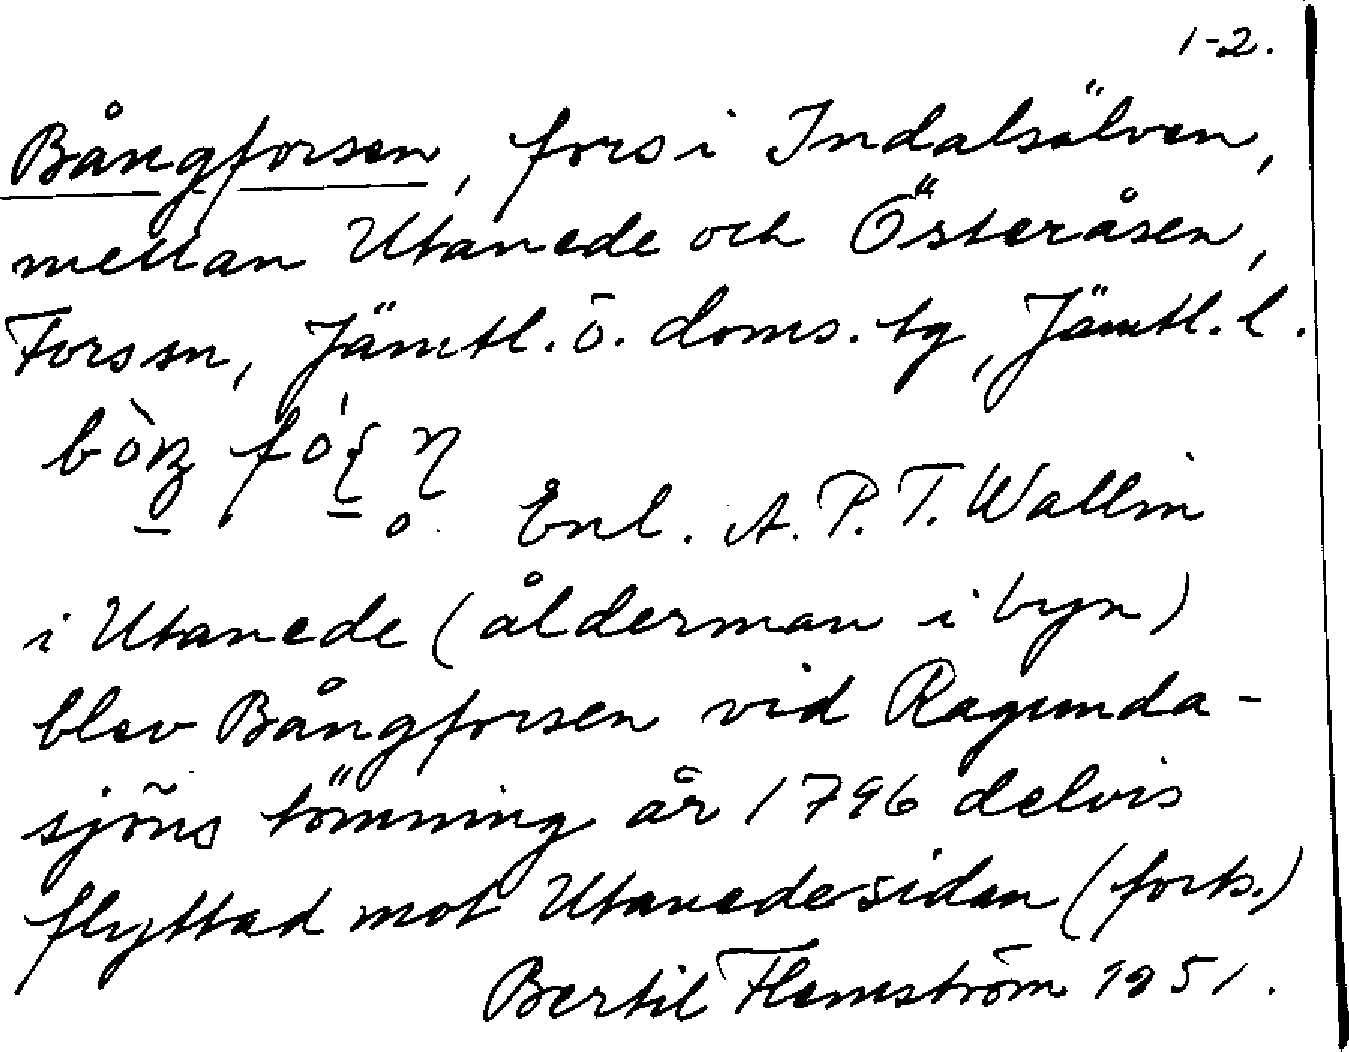 1-2.
Bångforsen, fors i Indalsälven,
mellan Utanede och Österåsen,
Forsen, Jämtl. ö. doms. tg, Jämtl. l.
Enl. A. P. T. Wallin
i Utanede (ålderman i byn)
blev Bångforsen vid Ragunda-
sjöns tömning år 1796 delvis
flyttad mot Utanedesidan (forts.)
Bertil Flemström 1951.